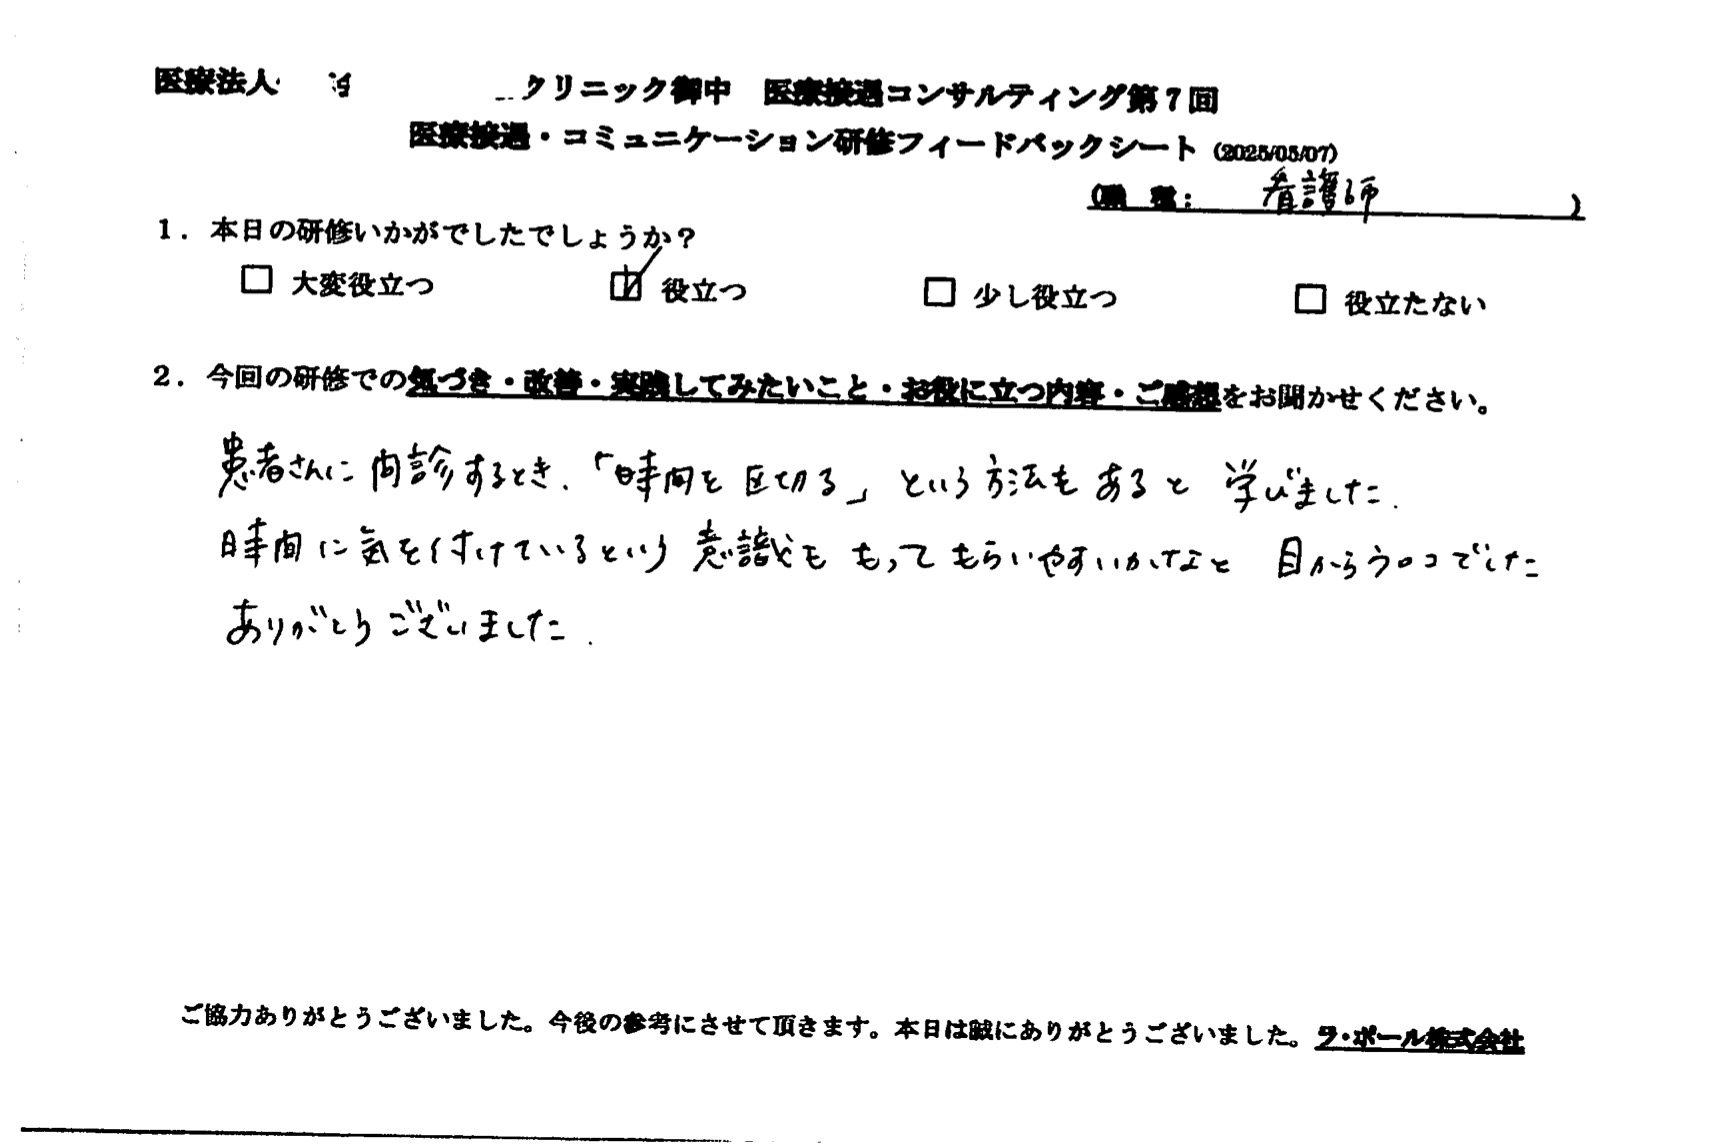 医療法人 クリニック御中 医療接遇コンサルティング第7回
医療接遇・コミュニケーション研修フィードバックシート (2025/05/07)
(職 種: 看護師 )
1. 本日の研修いかがでしたでしょうか?
□ 大変役立つ ☑ 役立つ □ 少し役立つ □ 役立たない
2. 今回の研修での気づき・改善・実践してみたいこと・お役に立つ内容・ご感想をお聞かせください。
患者さんに問診するとき、「時間を区切る」という方法もあると学びました.
時間に気を付けているという意識ももってもらいやすいかなと 目からウロコでした
ありがとうございました.
ご協力ありがとうございました。今後の参考にさせて頂きます。本日は誠にありがとうございました。ラ・ポール株式会社